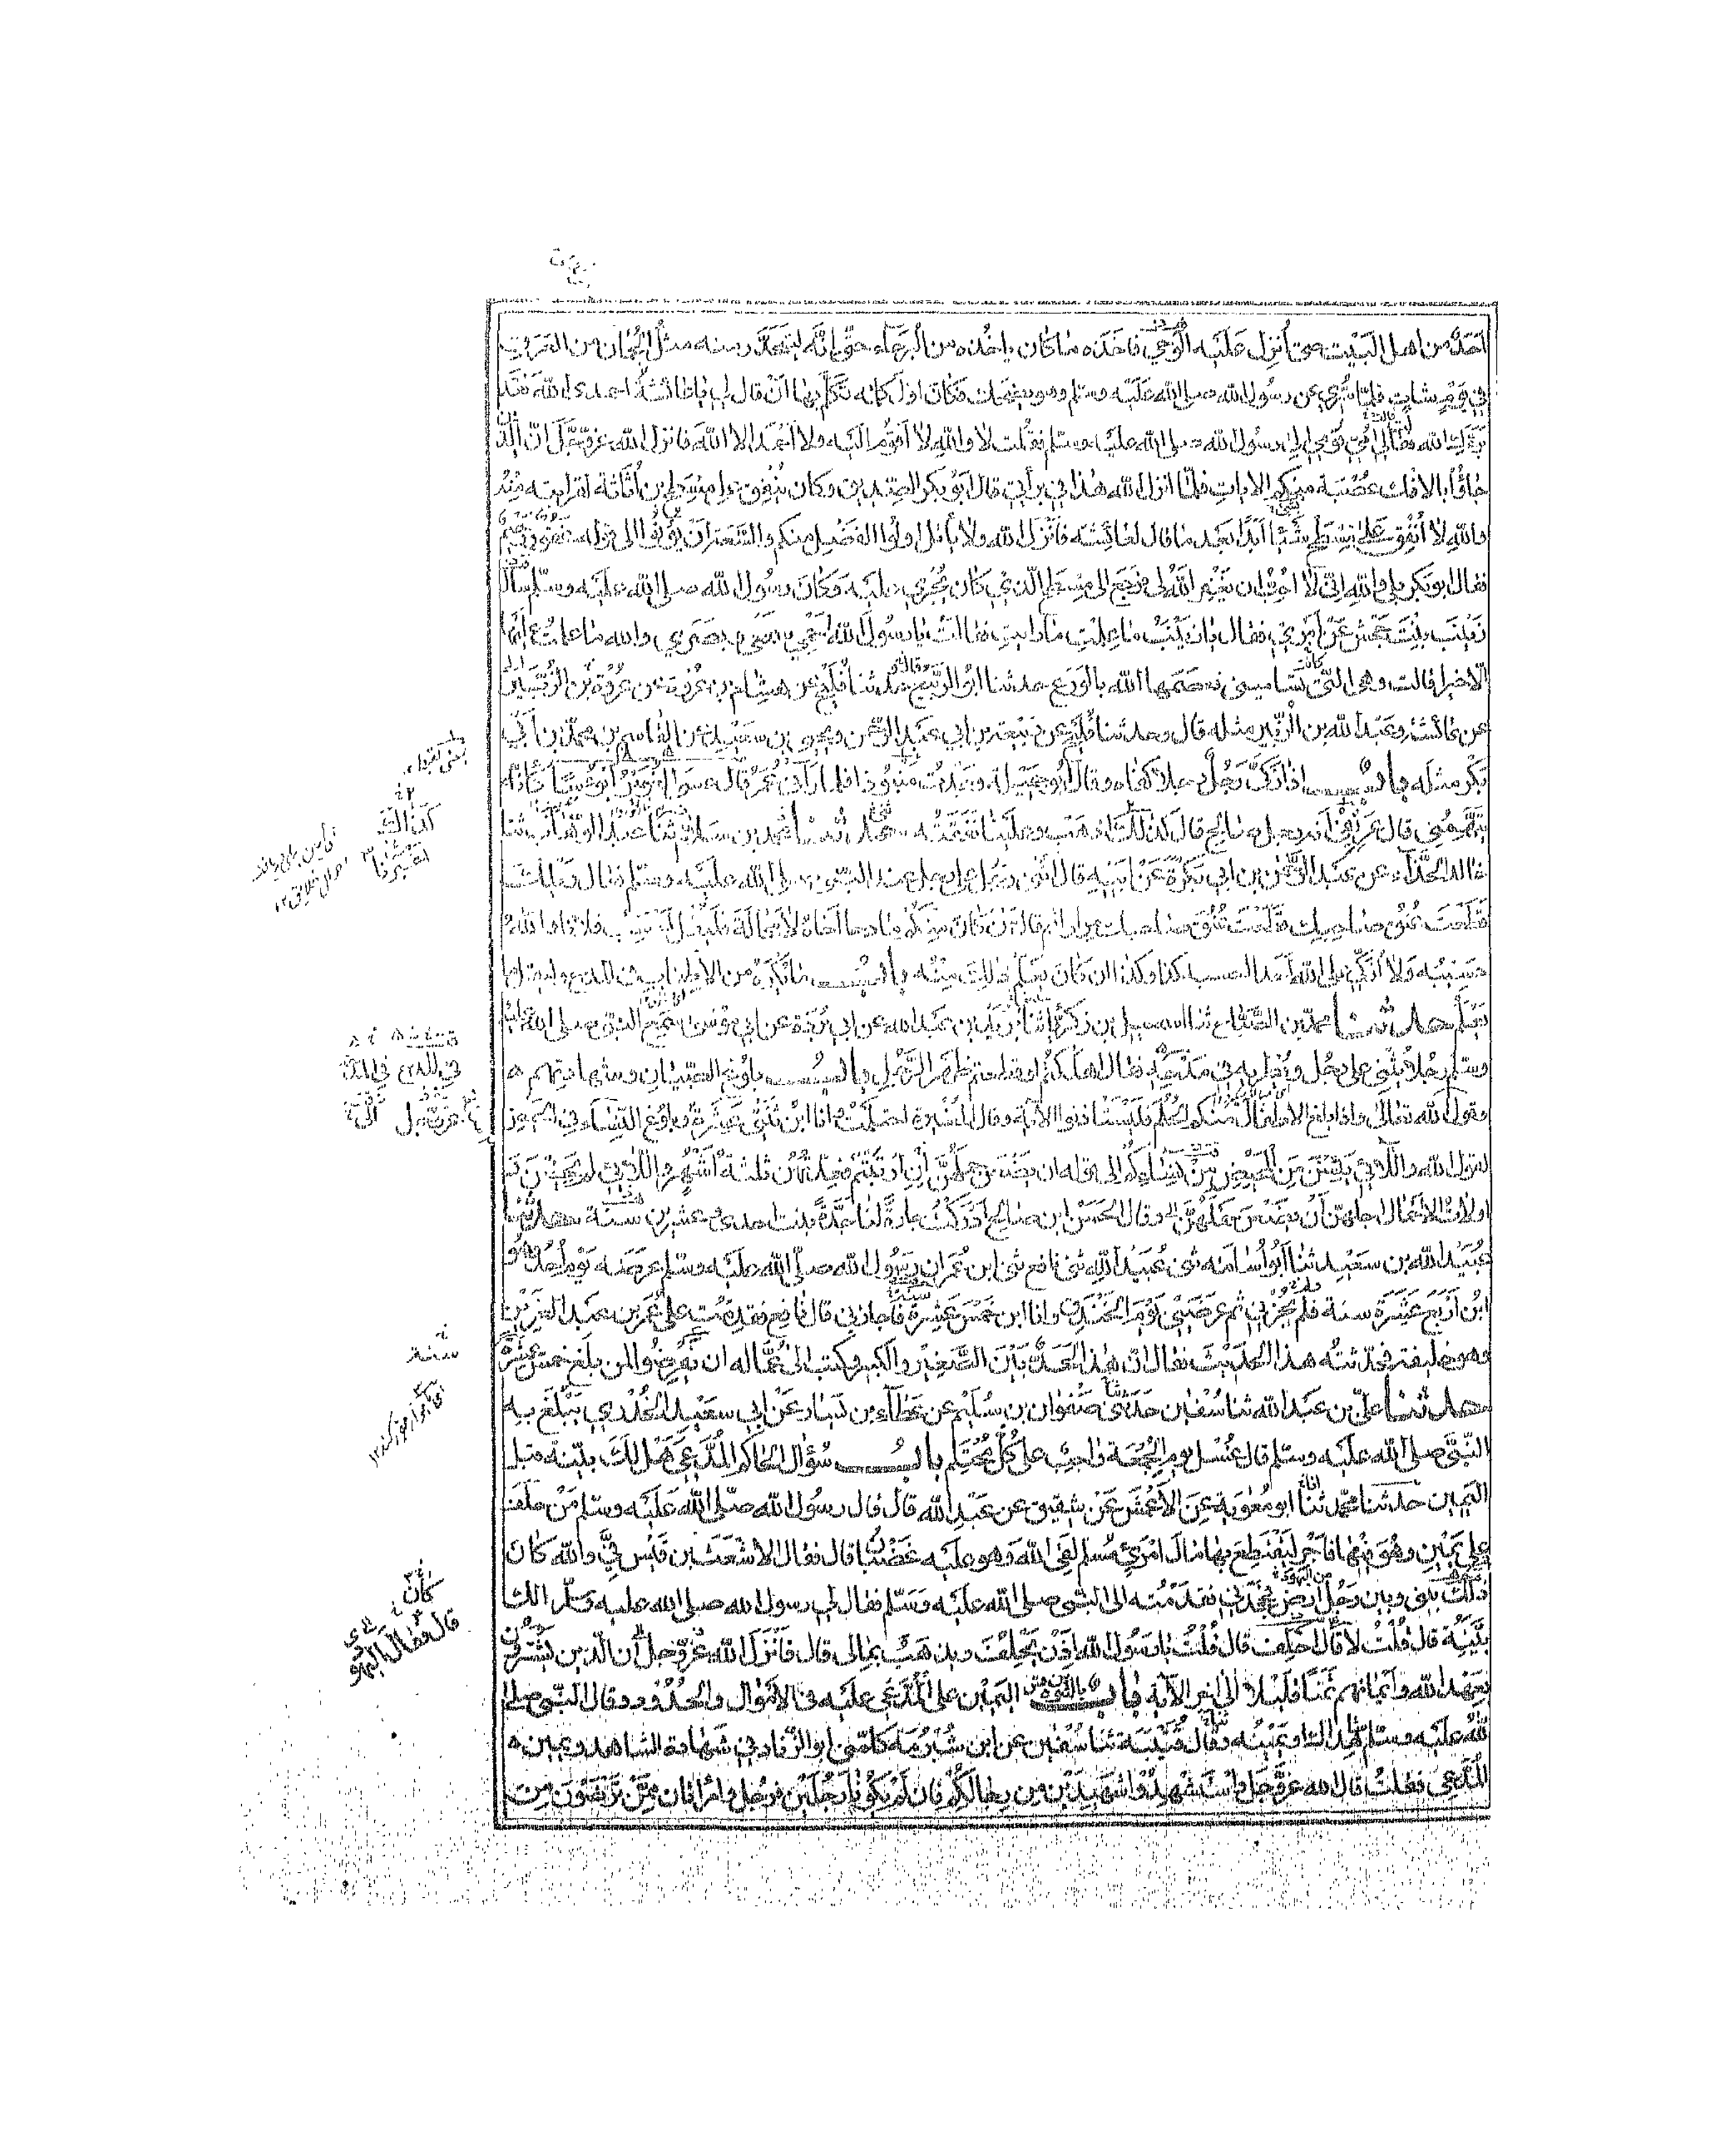 احد من اهل البيت حتى أنزل عليه الوحي فاخذه ما كان ياخذه من البرحاء حتى إنه ليتحدر منه مثل الجمان من العرق
في يوم شات فلما سري عن رسول الله صلى الله عليه وسلم وهو يضحك فكان اول كلمة تكلم بها ان قال لي يا عائشة احمدي الله فقد
برأك الله فقالت لي أمي قومي الى رسول الله صلى الله عليه وسلم فقلت لا والله لا أقوم اليه ولا احمد الا الله فانزل الله عز وجل ان الذين
جاؤا بالافك عصبة منكم الايات فلما انزل الله هذا في برأتي قال ابو بكر الصديق وكان ينفق على مسطح بن أثاثة لقرابته منه
والله لا أنفق على مسطح شيئا أبدا بعد ما قال لعائشة فأنزل الله ولا يأتل اولوا الفضل منكم والسعة ان يؤتوا الى قوله غفور رحيم
فقال ابو بكر بلى والله انى لأحب ان يغفر الله لي فرجع الى مسطح الذي كان يجري عليه وكان رسول الله صلى الله عليه وسلم سأل
زينب بنت جحش عن أمري فقال يا زينب ما علمت ما رايت فقالت يا رسول الله أحمي سمعي وبصري والله ما علمت عليها
الا خيرا قالت وهي التى كانت تساميني فعصمها الله بالورع حدثنا ابو الربيع حدثنا فليح عن هشام بن عروة عن عروة عن
عن عائشة وعبد الله بن الزبير مثله قال وحدثنا فليح عن ربيعة بن ابي عبد الرحمن ويحيى بن سعيد عن القاسم بن محمد بن أبي
بكر مثله باب اذا زكى رجل رجلا كفاه وقال أبو جميلة وجدت منبوذا فلما رآني عمر قال عسى الغوير أبؤسا كأنه
يتهمني قال عريفي انه رجل صالح قال كذلك اذهب وعلينا نفقته حدثنا محمد بن سلام ثنا عبد الوهاب ثنا
خالد الحذاء عن عبد الرحمن بن ابي بكرة عن أبيه قال أثنى رجل على رجل عند النبي صلى الله عليه وسلم فقال ويلك
قطعت عنق صاحبك قطعت عنق صاحبك مرارا ثم قال من كان منكم مادحا أخاه لا محالة فليقل احسب فلانا والله
حسيبه ولا أزكي على الله أحدا احسبه كذا وكذا ان كان يعلم ذلك منه باب ما يكره من الاطناب في المدح وليقل ما
يعلم حدثنا محمد بن الصباح ثنا اسمعيل بن زكريا ثنا بريد بن عبد الله عن ابي بردة عن ابي موسى سمع النبي صلى الله عليه
وسلم رجلا يثني على رجل ويطريه في مدحه فقال اهلكتم او قطعتم ظهر الرجل باب بلوغ الصبيان وشهادتهم
وقول الله تعالى واذا بلغ الاطفال منكم الحلم فليستأذنوا الآية وقال المغيرة احتلمت وانا ابن ثنتي عشرة وبلوغ النساء في الحيض
لقول الله واللائي يئسن من المحيض من نسائكم الى قوله ان يضعن حملهن إن ارتبتم فعدتهن ثلثة أشهر واللائي لم يحضن
اولات الاحمال اجلهن أن يضعن حملهن وقال الحسن ابن صالح ادركت جارة لنا جدة بنت احدى وعشرين سنة حدثنا
عبيد الله بن سعيد ثنا أبو أسامة ثنى عبيد الله ثنى نافع ثنى ابن عمر ان رسول الله صلى الله عليه وسلم عرضه يوم احد وهو
ابن أربع عشرة سنة فلم يجزني ثم عرضني يوم الخندق وانا ابن خمس عشرة فأجازني قال نافع فقدمت على عمر بن عبد العزيز
وهو خليفة فحدثته هذا الحديث فقال ان هذا لحد بين الصغير والكبير وكتب الى عماله ان يفرضوا لمن بلغ خمس عشرة
حدثنا علي بن عبد الله ثنا سفين حدثني صفوان بن سليم عن عطاء بن يسار عن ابي سعيد الخدري يبلغ به
النبي صلى الله عليه وسلم قال غسل يوم الجمعة واجب على كل محتلم باب سؤال الحاكم المدعي هل لك بينة قبل
اليمين حدثنا محمد ثنا ابو معوية عن الأعمش عن شقيق عن عبد الله قال قال رسول الله صلى الله عليه وسلم من حلف
على يمين وهو فيها فاجر ليقتطع بها مال امرئ مسلم لقي الله وهو عليه غضبان قال فقال الاشعث بن قيس في والله كان
ذلك بيني وبين رجل ارض فجحدني فقدمته الى النبي صلى الله عليه وسلم فقال لي رسول الله صلى الله عليه وسلم الك
بينة قال قلت لا قال احلف قال قلت يا رسول الله إذن يحلف ويذهب بمالى قال فأنزل الله عز وجل ان الذين يشترون
بعهد الله وأيمانهم ثمنا قليلا الى اخر الآية باب اليمين على المدعى عليه في الأموال والحدود وقال النبي صلى
الله عليه وسلم شاهداك او يمينه وقال قتيبة ثنا سفين عن ابن شبرمة كلمني ابو الزناد في شهادة الشاهد ويمين
المدعي فقلت قال الله عز وجل واستشهدوا شهيدين من رجالكم فان لم يكونا رجلين فرجل وامرأتان ممن ترضون من
سنة
كان